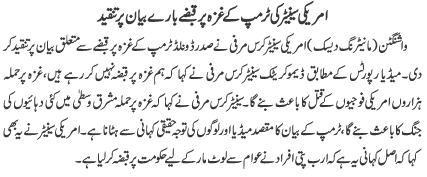 امریکی سینیٹر کی ٹرمپ کے غزہ پر قبضے بارے بیان پر تنقید
واشنگٹن (مانیٹرنگ ڈیسک) امریکی سینیٹر کرس مرفی نے صدر ڈونلڈ ٹرمپ کے غزہ پر قبضے سے متعلق بیان پر تنقید کر
دی۔ میڈیا رپورٹس کے مطابق ڈیموکریٹک کرس مرفی نے کہا کہ ہم غزہ پر قبضہ نہیں کر رہے ہیں، غزہ پر حملہ
ہزاروں امریکی فوجیوں کے قتل کا باعث بنے گا۔ سینیٹر کرس مرفی نے کہا کہ غزہ پر حملہ مشرق وسطیٰ میں کئی دہائیوں کی
جنگ کا باعث بنے گا، ٹرمپ کے بیان کا مقصد میڈیا اور لوگوں کی توجہ حقیقی کہانی سے ہٹانا ہے۔ امریکی سینیٹر نے یہ بھی
کہا کہ اصل کہانی یہ ہے کہ ارب پتی افراد نے عوام سے لوٹ مار کے لیے حکومت پر قبضہ کر لیا ہے۔